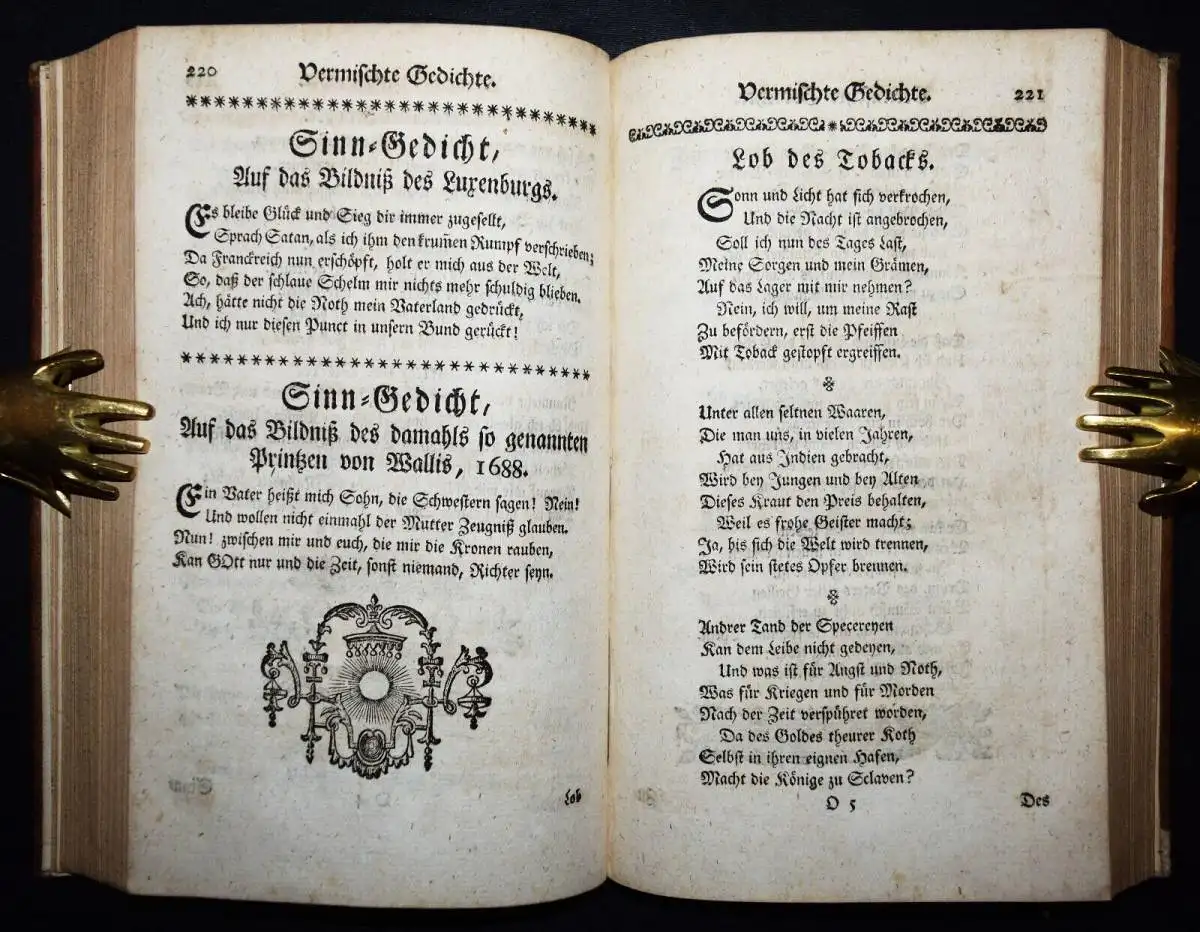 220 Vermischte Gedichte.
Sinn-Gedicht,
Auf das Bildniß des Luxenburgs.
Es bleibe Glück und Sieg dir immer zugesellt,
Sprach Satan, als ich ihm den krum̃en Rumpf verschrieben;
Da Franckreich nun erschöpft, holt er mich aus der Welt,
So, daß der schlaue Schelm mir nichts mehr schuldig blieben.
Ach, hätte nicht die Noth mein Vaterland gedrückt,
Und ich nur diesen Punct in unsern Bund gerückt!
Sinn-Gedicht,
Auf das Bildniß des damahls so genannten
Printzen von Wallis, 1688.
Ein Vater heißt mich Sohn, die Schwestern sagen! Nein!
Und wollen nicht einmahl der Mutter Zeugniß glauben.
Nun! zwischen mir und euch, die mir die Kronen rauben,
Kan GOtt nur und die Zeit, sonst niemand, Richter seyn.
Lob
Vermischte Gedichte. 221
Lob des Tobacks.
Sonn und Licht hat sich verkrochen,
Und die Nacht ist angebrochen,
Soll ich nun des Tages Last,
Meine Sorgen und mein Grämen,
Auf das Lager mit mir nehmen?
Nein, ich will, um meine Rast
Zu befördern, erst die Pfeiffen
Mit Toback gestopft ergreiffen.
Unter allen seltnen Waaren,
Die man uns, in vielen Jahren,
Hat aus Indien gebracht,
Wird bey Jungen und bey Alten
Dieses Kraut den Preis behalten,
Weil es frohe Geister macht;
Ja, bis sich die Welt wird trennen,
Wird sein stetes Opfer brennen.
Andrer Tand der Specereyen
Kan dem Leibe nicht gedeyen,
Und was ist für Angst und Noth,
Was für Kriegen und für Morden
Nach der Zeit verspühret worden,
Da des Goldes theurer Koth
Selbst in ihren eignen Hafen,
Macht die Könige zu Sclaven?
O 5 Des